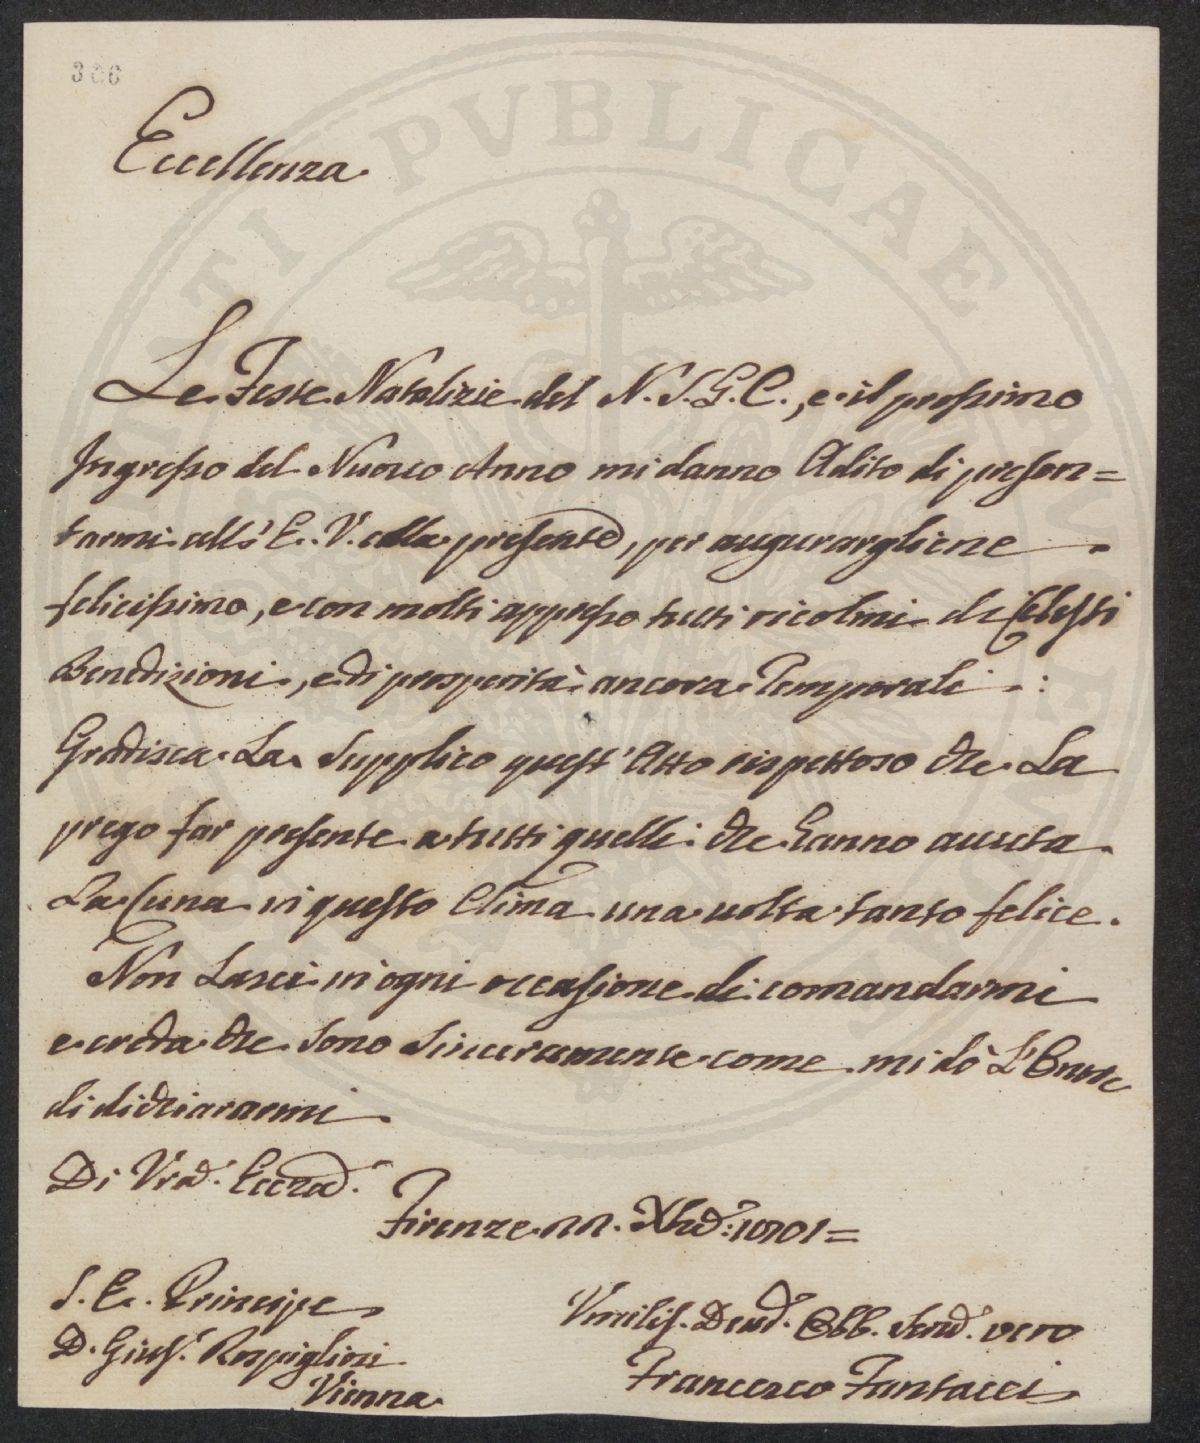 306
Eccellenza
Le Feste Natalizie del N. S. G. C., e il prossimo
Ingresso del Nuovo Anno mi danno Adito di presen=
tarmi all' E. V. colla presente, per augurargliene
felicissimo, e con molti appresso tutti ricolmi di Celesti
Benedizioni, e di prosperità ancora Temporali :
Gradisca La Supplico quest' Atto rispettoso che La
prego far presente a tutti quelli che hanno avuta
La Cuna in questo Clima una volta tanto felice.
Non Lasci in ogni occasione di comandarmi
e creda che sono Sinceramente come mi dò L'Onore
di dichiararmi
Di Vra. Eccza.
Firenze
S. E. Principe
D. Gius. Rospigliosi
Vienna
Umilis. Devd. Obb. Servd. vero
Francesco Fantacci